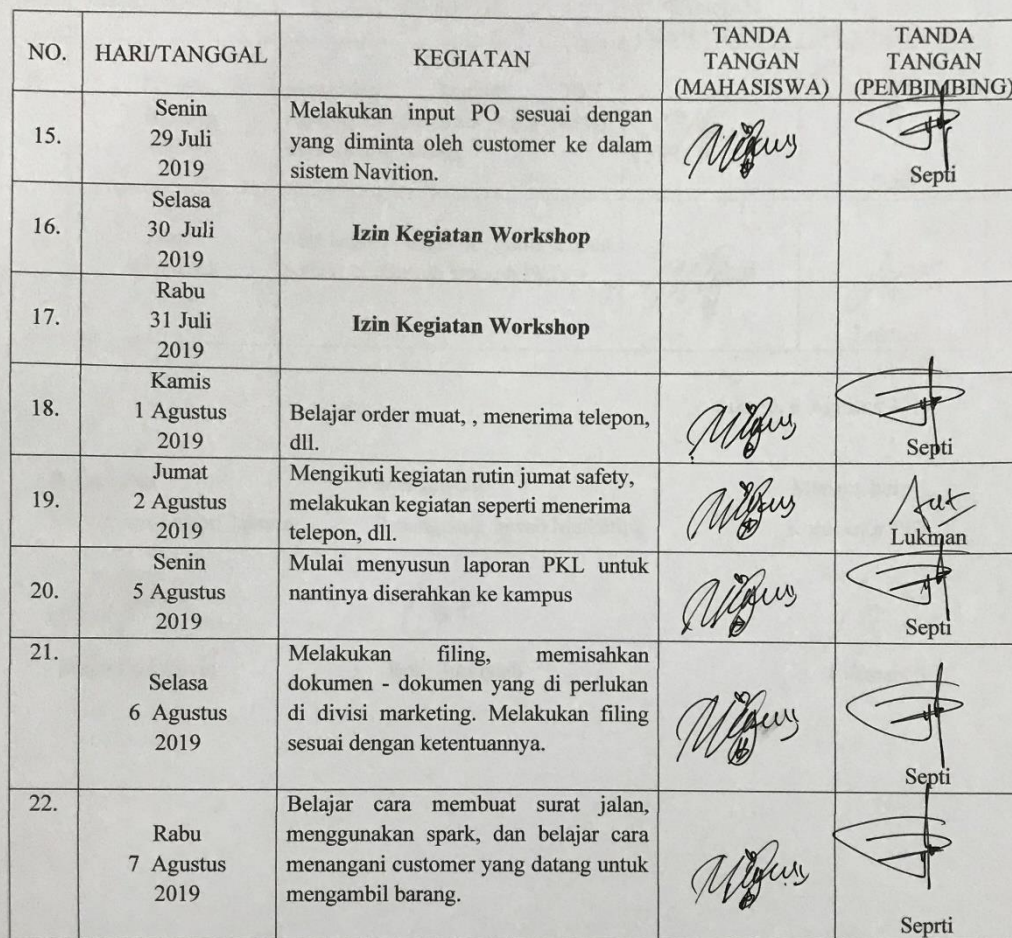 NO.
HARI/TANGGAL
KEGIATAN
TANDA
TANGAN
(MAHASISWA)
TANDA
TANGAN
(PEMBIMBING)
15.
Senin
29 Juli
2019
Melakukan input PO sesuai dengan
yang diminta oleh customer ke dalam
sistem Navition.
Septi
16.
Selasa
30 Juli
2019
Izin Kegiatan Workshop
17.
Rabu
31 Juli
2019
Izin Kegiatan Workshop
18.
Kamis
1 Agustus
2019
Belajar order muat, , menerima telepon,
dll.
Septi
19.
Jumat
2 Agustus
2019
Mengikuti kegiatan rutin jumat safety,
melakukan kegiatan seperti menerima
telepon, dll.
Lukman
20.
Senin
5 Agustus
2019
Mulai menyusun laporan PKL untuk
nantinya diserahkan ke kampus
Septi
21.
Selasa
6 Agustus
2019
Melakukan filing, memisahkan
dokumen - dokumen yang di perlukan
di divisi marketing. Melakukan filing
sesuai dengan ketentuannya.
Septi
22.
Rabu
7 Agustus
2019
Belajar cara membuat surat jalan,
menggunakan spark, dan belajar cara
menangani customer yang datang untuk
mengambil barang.
Seprti